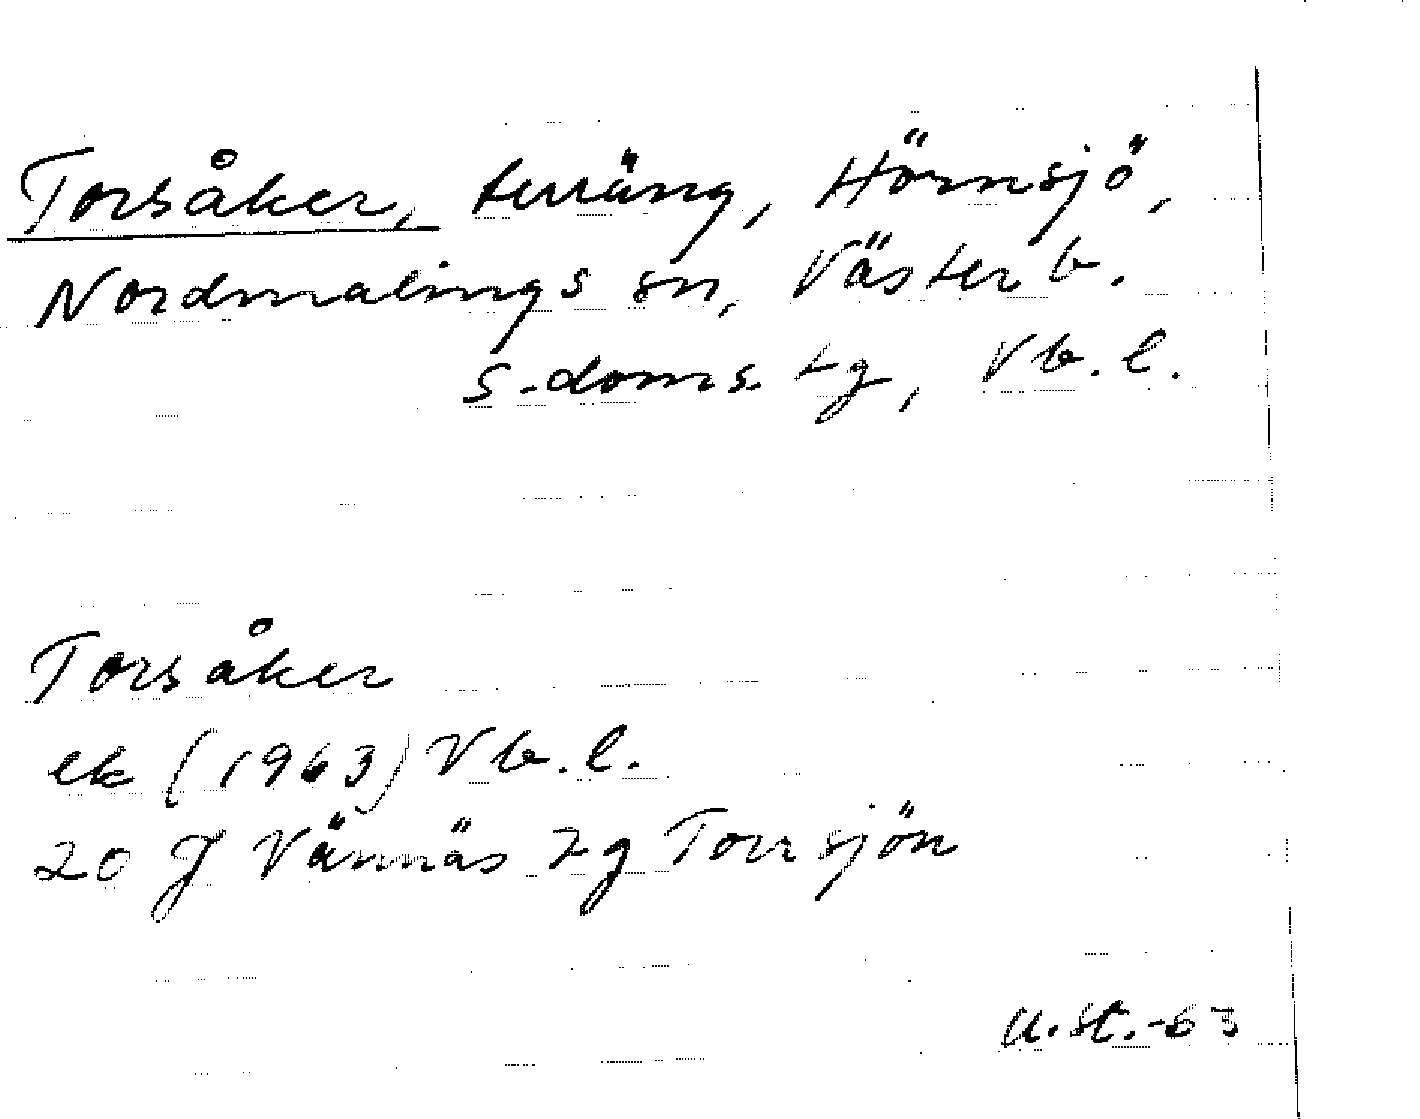 Torsåker, terräng, Hörnsjö,
Nordmalings sn, Västerb.
s. doms. tg, Vb. l.
Torsåker
ek (1963) Vb. l.
20 J Vännäs 2 g Torrsjön
U. St. -63